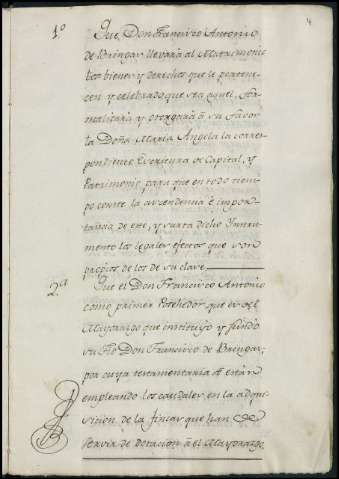 4
1º Que, Don Francisco Antonio
de Bringas llevará al Matrimonio
los bienes y derechos que le pertene-
cen y celebrado que sea aquel, for-
malizará y otorgará a su favor
la Doña Maria Angela la corres-
pondiente Escritura de Capital, y
Patrimonio, para que en todo tiem-
po conste la ascendencia è impor-
tancia de este, y surta dicho Instru-
mento los legales efectos que son
propios de los de su clase
2ª Que el Don Francisco Antonio
como primer Posehedor que es del
Mayorazgo que instituyó y fundó
su tio Don Francisco de Bringas,
por cuya testamentaria se están
empleando los caudales en la adqui-
sicion de las fincas que han de
servir de dotacion a el Mayorazgo,